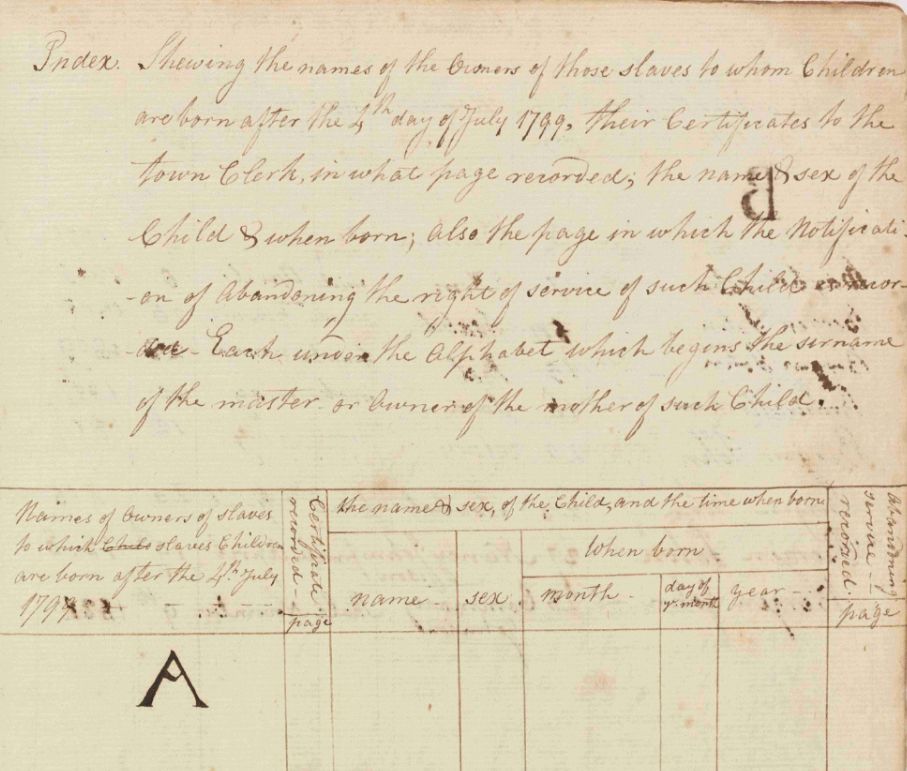 Index. Shewing the names of the Owners of those slaves to whom Children
are born after the 4th day of July 1799, their Certificates to the
town Clerk, in what page recorded; the name & sex of the
Child & when born; also the page in which the Notificati-
-on of Abandoning the right of service of such Child is recor-
ded - Each under the Alphabet which begins the sirname
of the master or owner of the mother of such Child.
Names of Owners of slaves
to which Child slaves Children
are born after the 4th July
1799
Certificate
recorded -
page
the name & sex, of the Child, and the time when born
name
sex
When born
month -
day of
ye. month
year -
Abandoning
service -
recorded
page
A